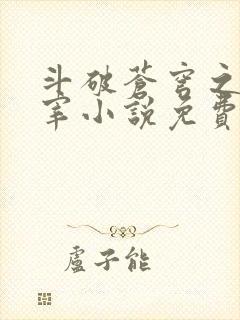 斗破蒼穹之
宰小說免費
盧子能